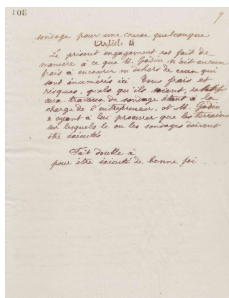 108
9
sondage pour une cause quelconque
Article 11
Le présent engagement est fait de
manière à ce que M. Godin n'ait aucuns
frais à encourir en dehors de ceux qui
sont énumérés ici. Tous frais et
risques, quels qu'ils soient, relatifs
aux travaux de sondage étant à la
charge de l'entrepreneur, et M. Godin
n'ayant à lui procurer que les terrains
sur lesquels le ou les sondages doivent
être exécutés
Fait double à
pour être exécuté de bonne foi